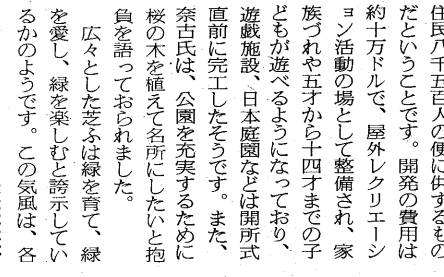 住民八千五百人の便に供するもの
だということです。開発の費用は
約十万ドルで、屋外レクリエーシ
ョン活動の場として整備され、家
族づれや五才から十四才までの子
どもが遊べるようになっており、
遊戯施設、日本庭園などは開所式
直前に完工したそうです。また、
奈古氏は、公園を充実するために
桜の木を植えて名所にしたいと抱
負を語っておられました。
広々とした芝ふは緑を育て、緑
を愛し、緑を楽しむと誇示してい
るかのようです。この気風は、各